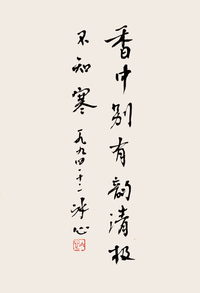 香中别有韵清极
不知寒 一九九四·十二 冰心